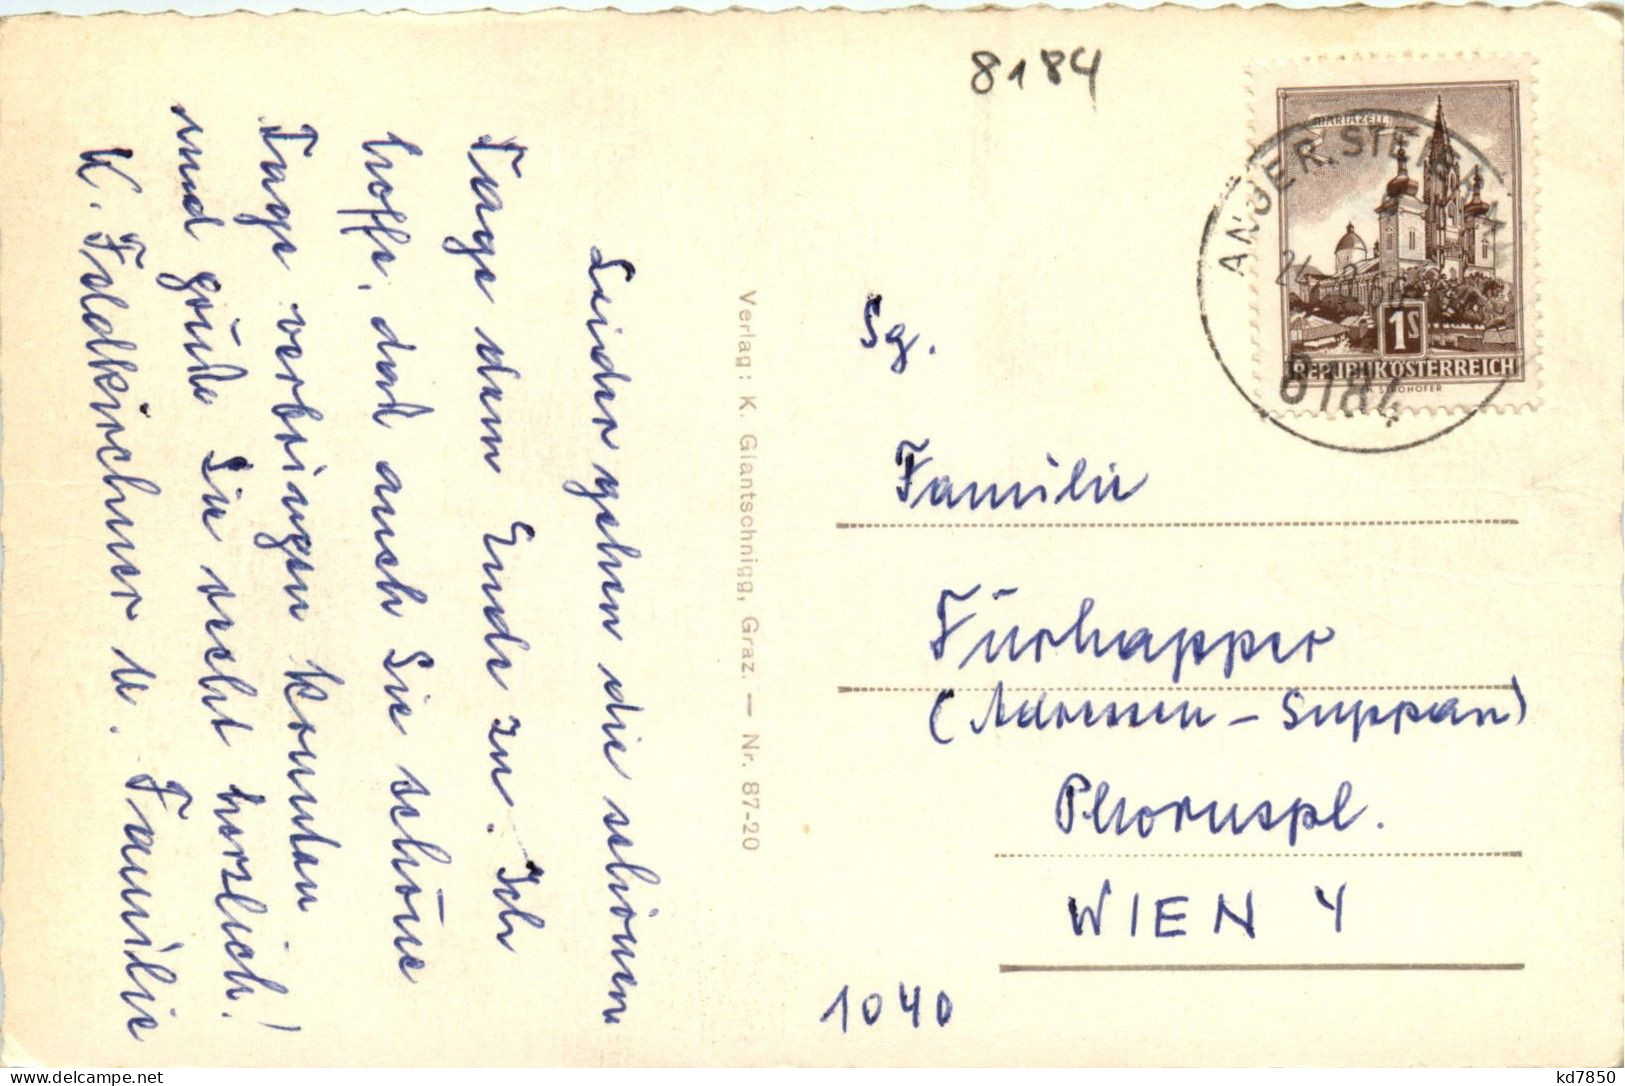 8184
MARIAZELL
ANGER, STEIERM.
8184
1S
REPUBLIK ÖSTERREICH
Leider gehen die schönen
Tage dem Ende zu. Ich
hoffe, daß auch Sie schöne
Tage verbringen konnten
und grüße Sie recht herzlich!
K. Feldkirchner u. Familie
Verlag: K. Glantschnigg, Graz. — Nr. 87-20
Sg.
Familie
Fürhapper
(Adressen - Suppan)
Phoruspl.
WIEN 4
1040
kd7850